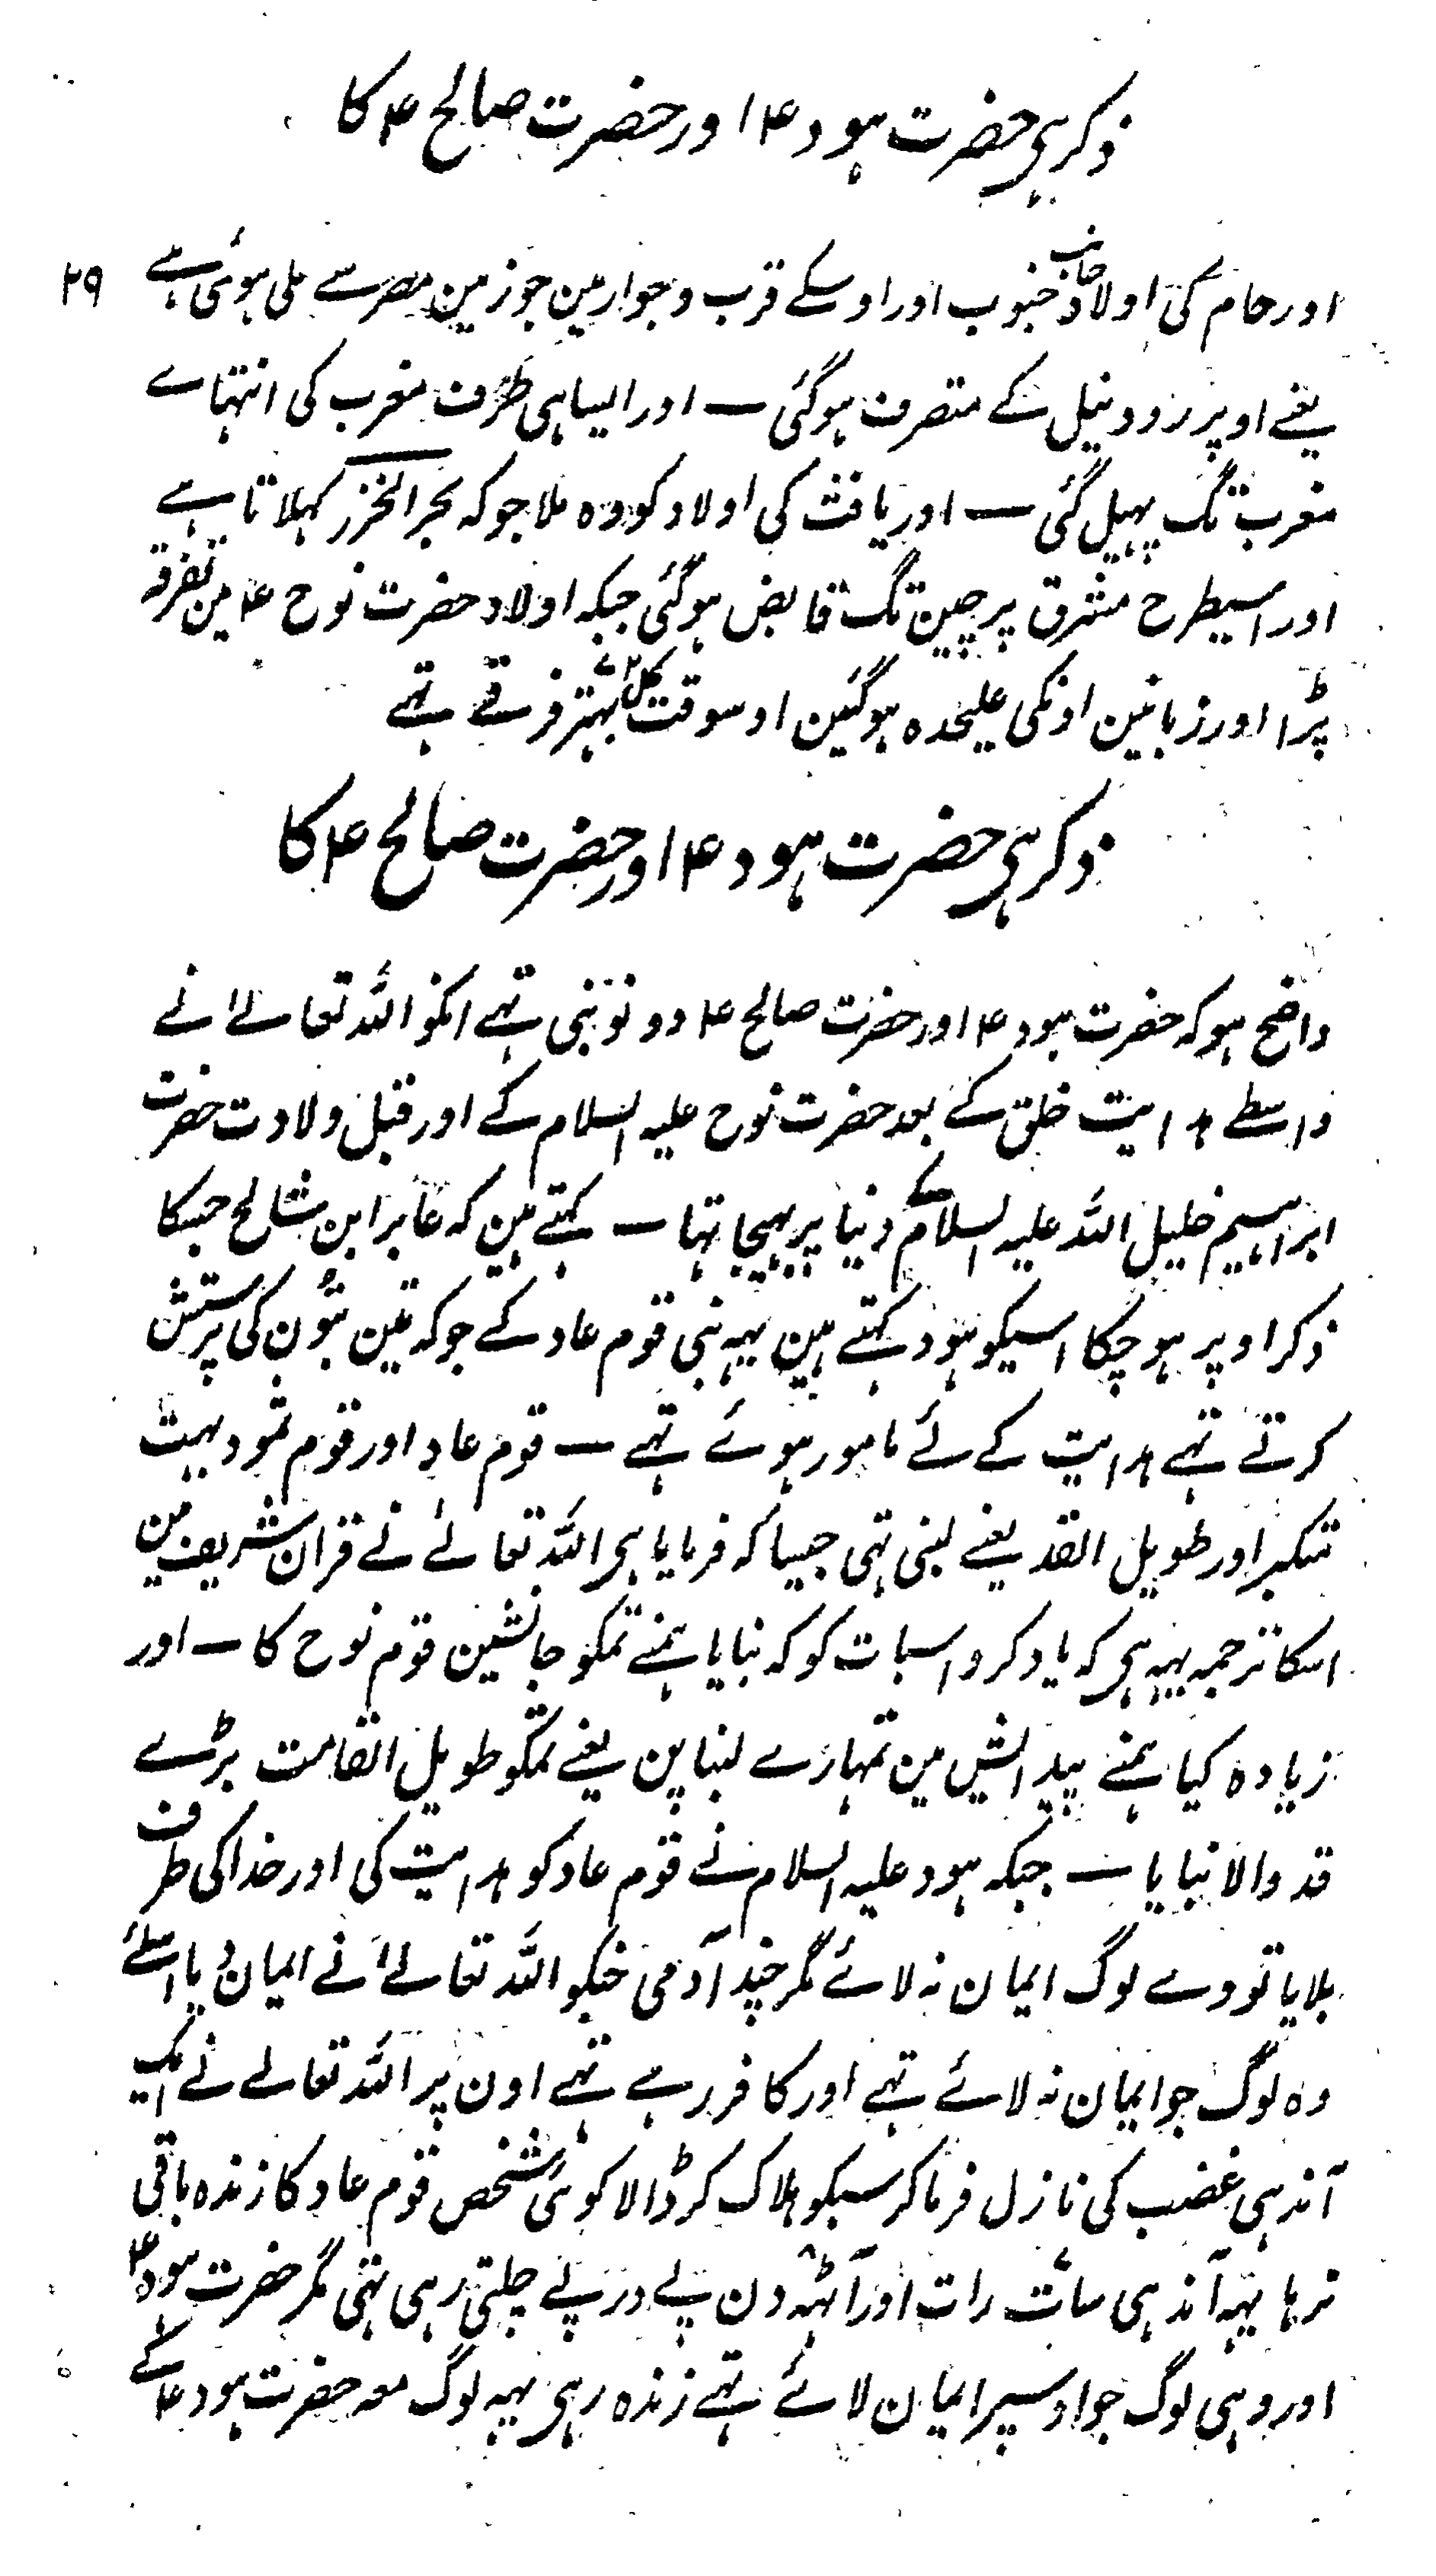 ذکر ہی حضرت ہود ۴ اور حضرت صالح ۴ کا
۲۹
اور حام کی اولاد جانب جنوب اور اوسکے قرب و جوار مین جو زمین مصر سے ملی ہوئی ہے
یعنے اوپر رود نیل کے متصرف ہوگئی ــ اور ایسا ہی طرف مغرب کی انتہاے
مغرب تگ پہیل گئی ــ اور یافث کی اولاد کو وہ ملا جو کہ بحر الخزر کہلاتا ہے
اور اسیطرح مشرق پر چین تگ قابض ہوگئی جبکہ اولاد حضرت نوح ۴ مین تفرقہ
پڑا اور زبانین اونکی علیحدہ ہوگئین اوسوقت کل بہتر فرقے تہے
ذکر ہی حضرت ہود ۴ اور حضرت صالح ۴ کا
واضح ہو کہ حضرت ہود ۴ اور حضرت صالح ۴ دونو نبی تہے انکو اللہ تعالےٰ نے
واسطے ہدایت خلق کے بعد حضرت نوح علیہ السلام کے اور قبل ولادت حضرت
ابراہیم خلیل اللہ علیہ السلام کے دنیا پر بہیجا تہا ــ کہتے ہین کہ عابر ابن شالح جسکا
ذکر اوپر ہو چکا اسیکو ہود کہتے ہین یہہ نبی قوم عاد کے جو کہ تین بتون کی پرستش
کرتے تہے ہدایت کے لئے مامور ہوئے تہے ــ قوم عاد اور قوم ثمود بہت
متکبر اور طویل القد یعنے لنبی تہی جیسا کہ فرمایا ہی اللہ تعالےٰ نے قران شریف مین
اسکا ترجمہ یہہ ہی کہ یاد کرو اسبات کو کہ بنایا ہمنے تمکو جانشین قوم نوح کا ــ اور
زیادہ کیا ہمنے پیدائش مین تمہارے لنباپن یعنے تمکو طویل القامت بڑے
قد والا بنایا ــ جبکہ ہود علیہ السلام نے قوم عاد کو ہدایت کی اور خدا کی طرف
بلایا تو وے لوگ ایمان نہ لائے مگر چند آدمی جنکو اللہ تعالےٰ نے ایمان دیا اسلئے
وہ لوگ جو ایمان نہ لائے تہے اور کافر رہے تہے اون پر اللہ تعالے نے ایک
آندہی غضب کی نازل فرماکر سبکو ہلاک کر ڈالا کوئی شخص قوم عاد کا زندہ باقی
نرہا یہہ آندہی سات رات اور آٹہہ دن پے در پے چلتی رہی تہی مگر حضرت ہود ۴
اور وہی لوگ جو اوسپر ایمان لائے تہے زندہ رہی یہہ لوگ معہ حضرت ہود ۴ کے